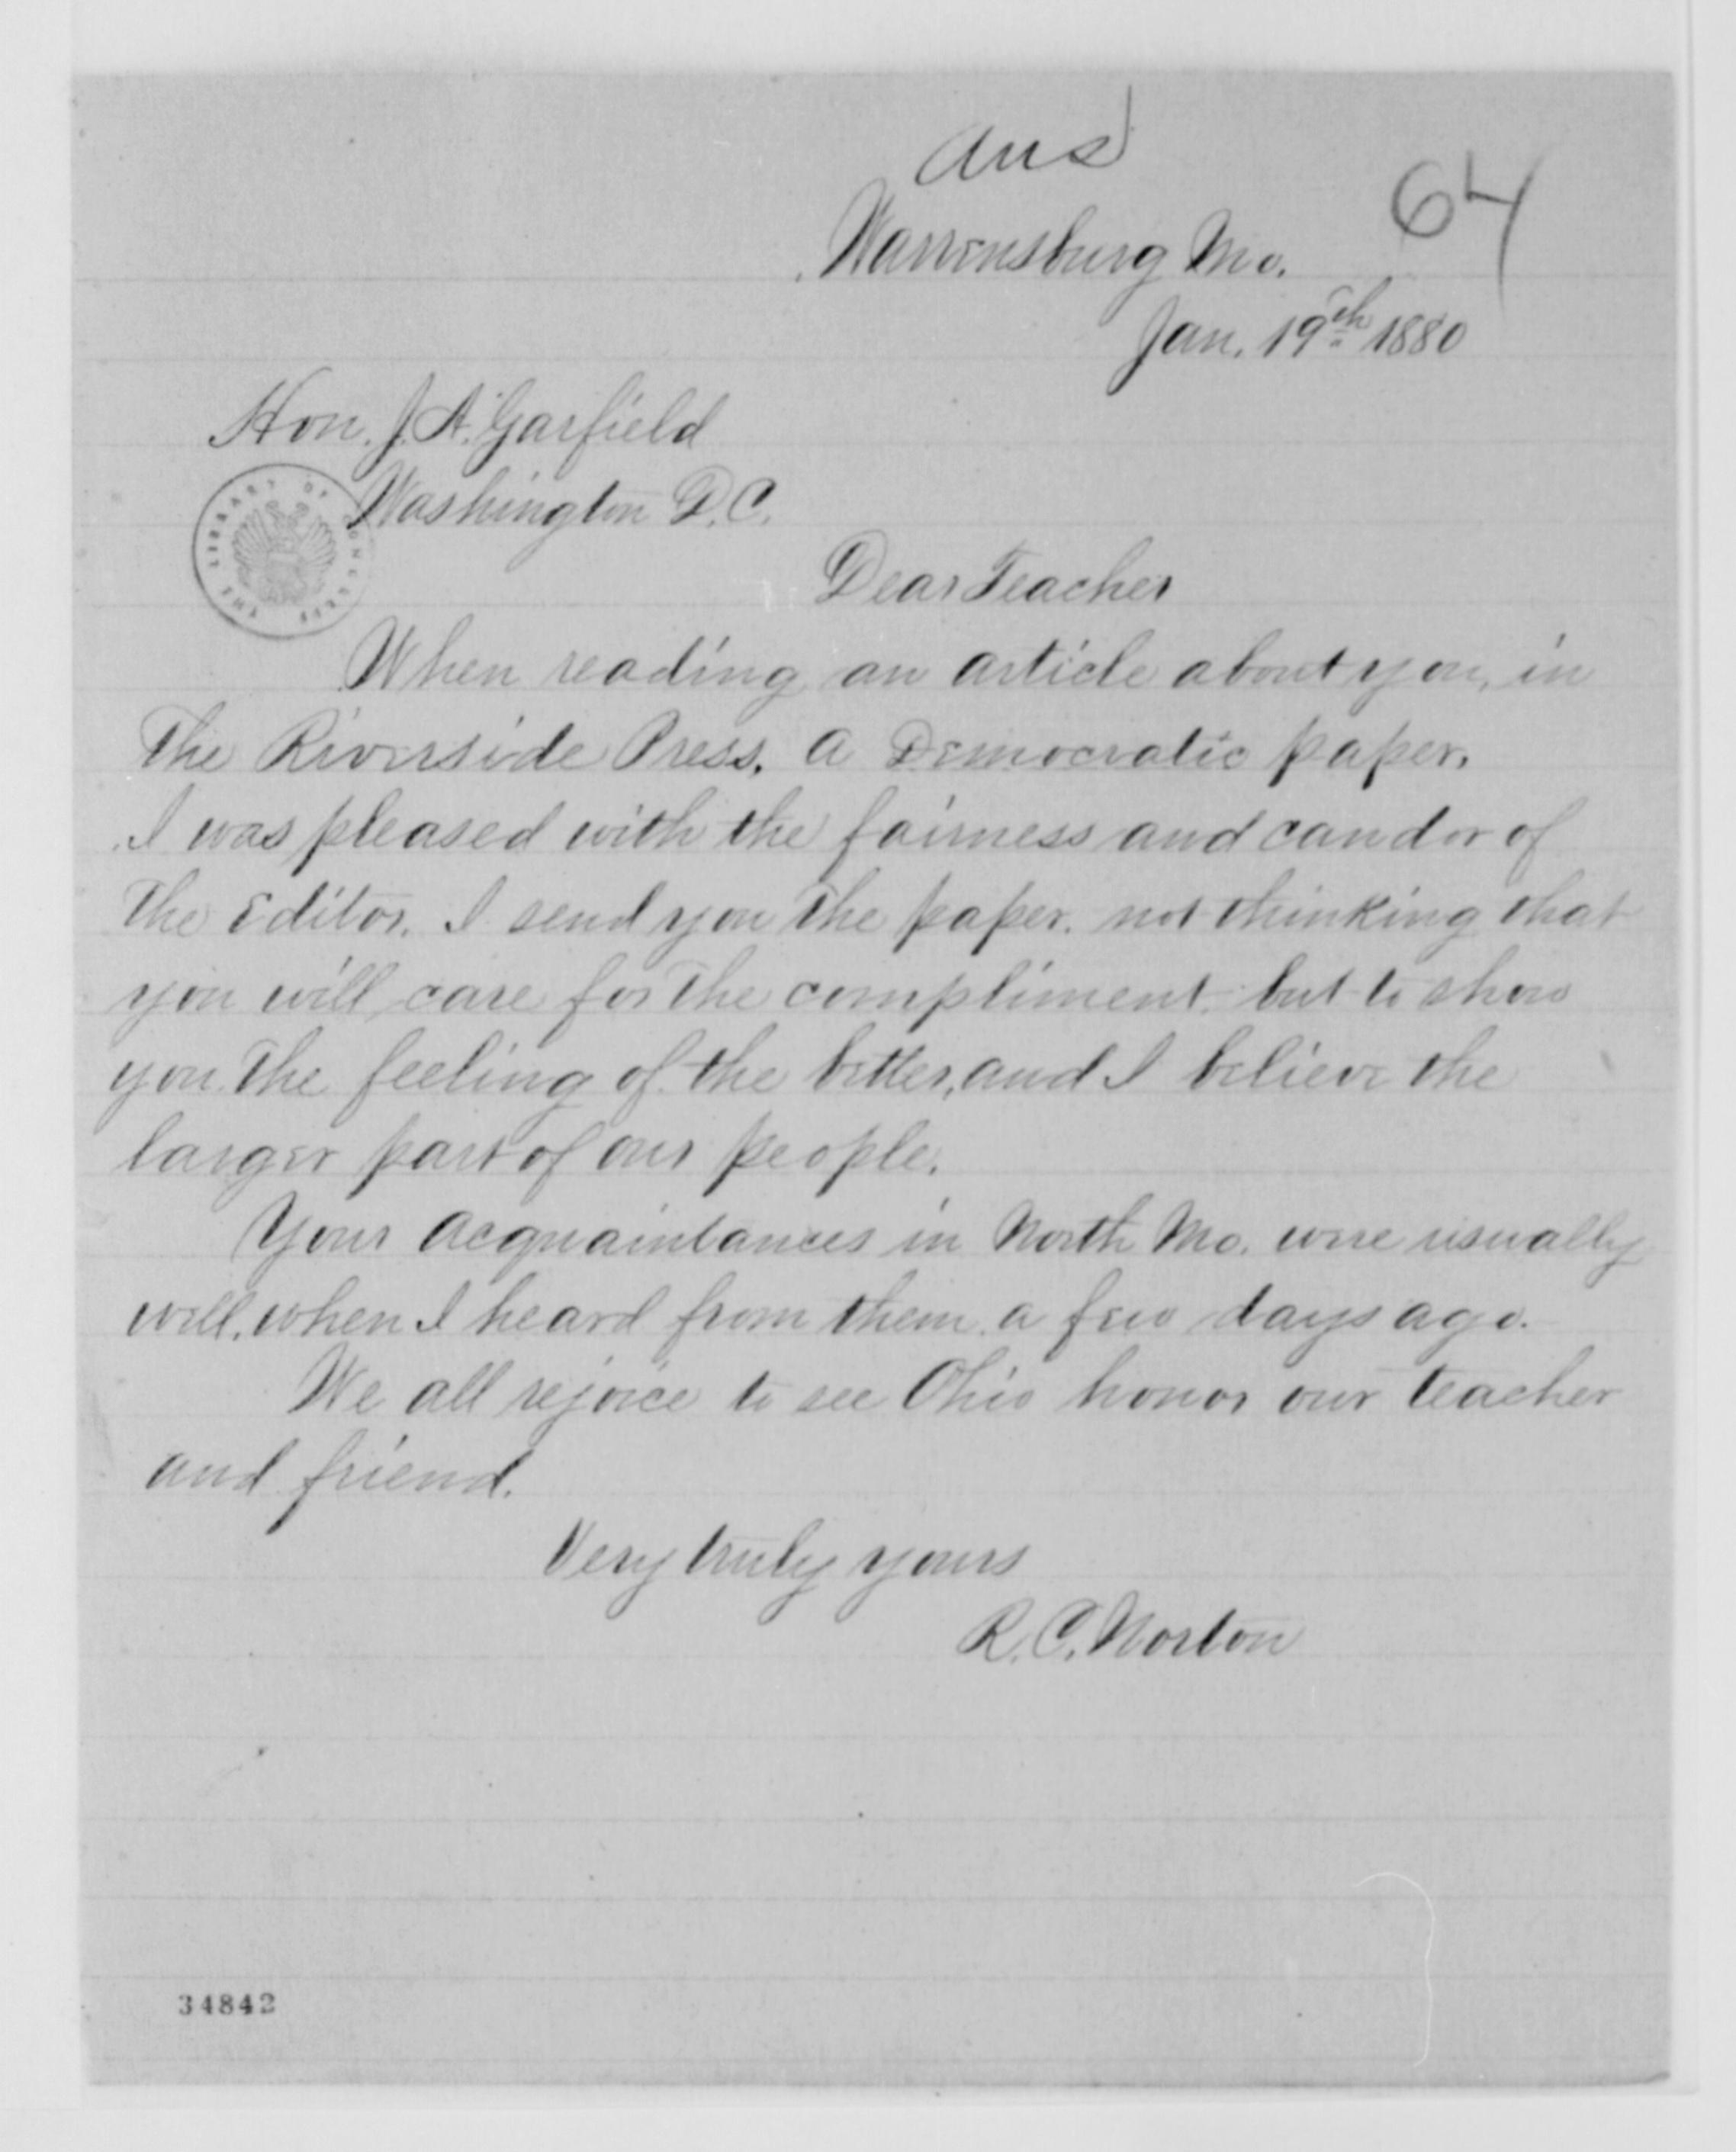 Ansd
64
Warrensburg Mo.
Jan. 19th 1880
Hon. J. A. Garfield
Washington D. C.
THE LIBRARY OF CONGRESS
Dear Teacher
When reading an article about you, in
the Riverside Press. a Democratic paper.
I was pleased with the fairness and candor of
the Editor. I send you the paper. not thinking that
you will care for the compliment. but to show
you the feeling of the better, and I believe the
larger part of our people.
Your acquaintances in North Mo. were usually
well, when I heard from them a few days ago.
We all rejoice to see Ohio honor our teacher
and friend.
Very truly yours
R. C. Norton
34842